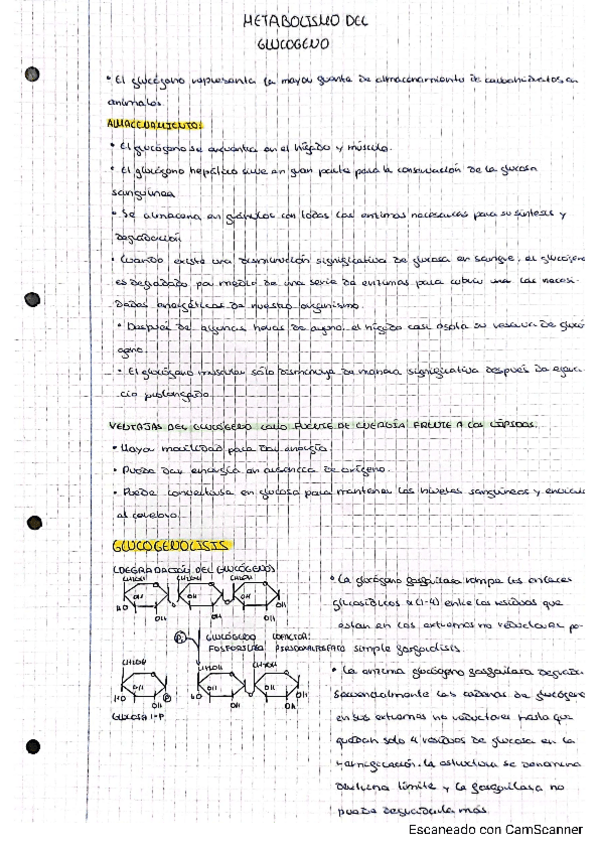 METABOLISMO DEL
GLUCOGENO
• El glucógeno representa la mayor fuente de almacenamiento de carbohidratos en
animales.
ALMACENAMIENTO:
• El glucógeno se encuentra en el hígado y músculo.
• El glucógeno hepático sirve en gran parte para la conservación de la glucosa
sanguínea
• Se almacena en gránulos con todas las enzimas necesarias para su síntesis y
degradación
• Cuando existe una disminución significativa de glucosa en sangre, el glucógeno
es degradado por medio de una serie de enzimas para cubrir las necesi-
dades energéticas de nuestro organismo.
• Después de algunas horas de ayuno, el hígado casi agota su reserva de glucó
geno.
• El glucógeno muscular sólo disminuye de manera significativa después de ejerci-
cio prolongado
VENTAJAS DEL GLUCOGENO COMO FUENTE DE ENERGÍA FRENTE A LOS LÍPIDOS.
• Mayor movilidad para dar energía
• Puede dar energía en ausencia de oxígeno.
• Puede convertirse en glucosa para mantener los niveles sanguíneos y
al cerebro
GLUCOGENOLISIS
(DEGRADACIÓN DEL GLUCÓGENO)
CH2OH CH2OH CH2OH
HO OH OH OH OH
P GLUCÓGENO COFACTOR:
FOSFORILASA PIRIDOXALFOSFATO
CH2OH CH2OH CH2OH
HO OH P HO OH OH OH
GLUCOSA 1-P
• La glucógeno fosforilasa rompe los enlaces
glucosídicos α(1-4) entre los residuos que
estan en los extremos no reductores por
simple fosforolisis.
• La enzima glucógeno fosforilasa degrada
secuencialmente las cadenas de glucógeno
en sus extremos no reductores hasta que
quedan solo 4 residuos de glucosa en la
ramificación. La estructura se denomina
dextrina límite y la fosforilasa no
puede degradarla más.
Escaneado con CamScanner